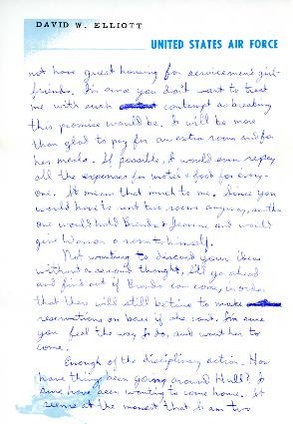 DAVID W. ELLIOTT
UNITED STATES AIR FORCE
not have guest housing for servicemen's girl-
friends. I'm sure you don't want to treat
me with such contempt as breaking
this promise would be. I will be more
than glad to pay for an extra room and for
her meals. If possible, I would even repay
all the expenses for motel & food for every-
one. It means that much to me. Since you
would have to rent two rooms anyway,
one would hold Brenda & Jeanne and would
give a room to himself.
Not wanting to discard your ideas
without a second thought, I'll go ahead
and find out if Brenda can come, in order
that there will still be time to make
reservations on base if she can't. I'm sure
you feel the way I do, and want her to
come.
Enough of the disciplinary action. How
have things been going around Hull? I
sure have been wanting to come home. It
seems at the moment that I am two